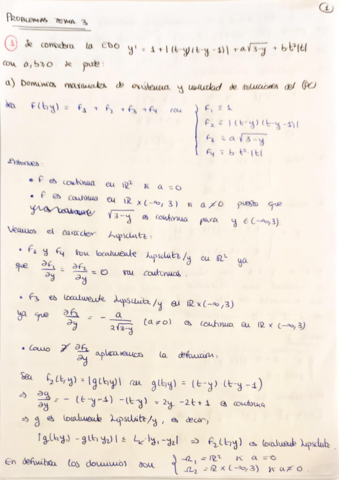 ①
PROBLEMAS TEMA 3
① Se considera la EDO y' = 1 + |(t-y)(t-y-1)| + a√3-y + bt²|t|
con a,b≥0 se pide:
a) Dominios maximales de existencia y unicidad de soluciones del (PC)
Sea F(t,y) = F₁ + F₂ + F₃ + F₄ con { F₁ = 1
F₂ = |(t-y)(t-y-1)|
F₃ = a√3-y
F₄ = b t²|t|
Entonces:
• F es continua en ℝ² si a = 0
• F es continua en ℝ × (-∞, 3) si a ≠ 0 puesto que
√3-y es continua para y ∈ (-∞, 3)
Veamos el carácter Lipschitz:
• F₁ y F₄ son localmente Lipschitz/y en ℝ² ya
que ∂F₁/∂y = ∂F₄/∂y = 0 son continuas.
• F₃ es localmente Lipschitz/y en ℝ × (-∞, 3)
ya que ∂F₃/∂y = - a/2√3-y (a≠0) es continua en ℝ × (-∞, 3)
• Como ∄ ∂F₂/∂y aplicaremos la definición:
Sea f₂(t,y) = |g(t,y)| con g(t,y) = (t-y)(t-y-1)
⇒ ∂g/∂y = -(t-y-1) - (t-y) = 2y - 2t + 1 es continua
⇒ g es localmente Lipschitz/y, es decir,
|g(t,y₁) - g(t,y₂)| ≤ Lₖ |y₁-y₂| ⇒ F₂(t,y) es localmente Lipschitz.
En definitiva los dominios son { Ω₁ = ℝ² si a = 0
Ω₂ = ℝ × (-∞, 3) si a ≠ 0